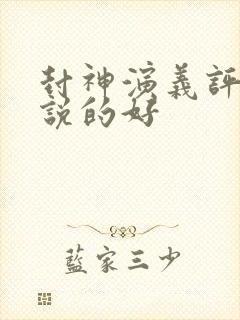 封神演義評
説的好
藍家三少